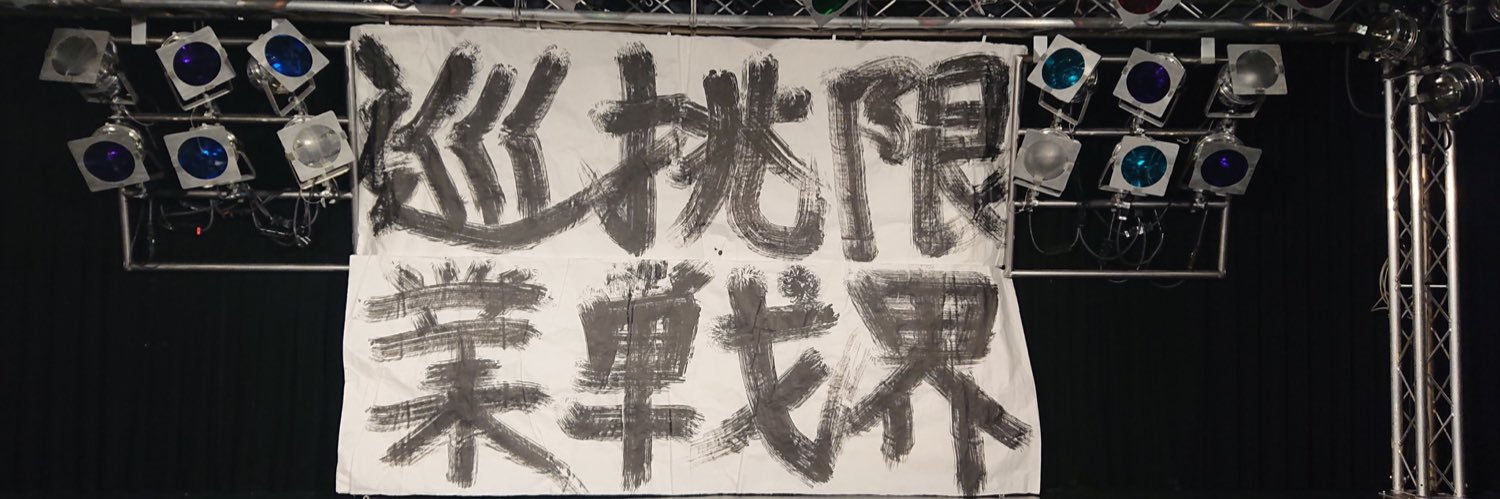 限界
挑戦
巡業